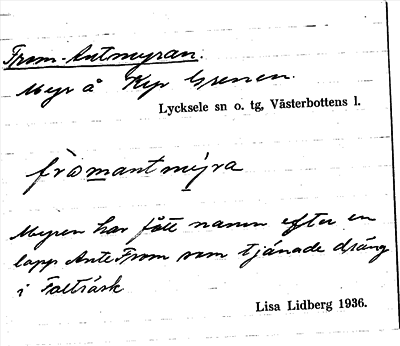 From-Antmyran.
Myr å Kip Grenen.
Lycksele sn o. tg, Västerbottens l.
fròmantmỳra
Myren har fått namn efter en
lapp Ante From som tjänade dräng
i Falträsk
Lisa Lidberg 1936.